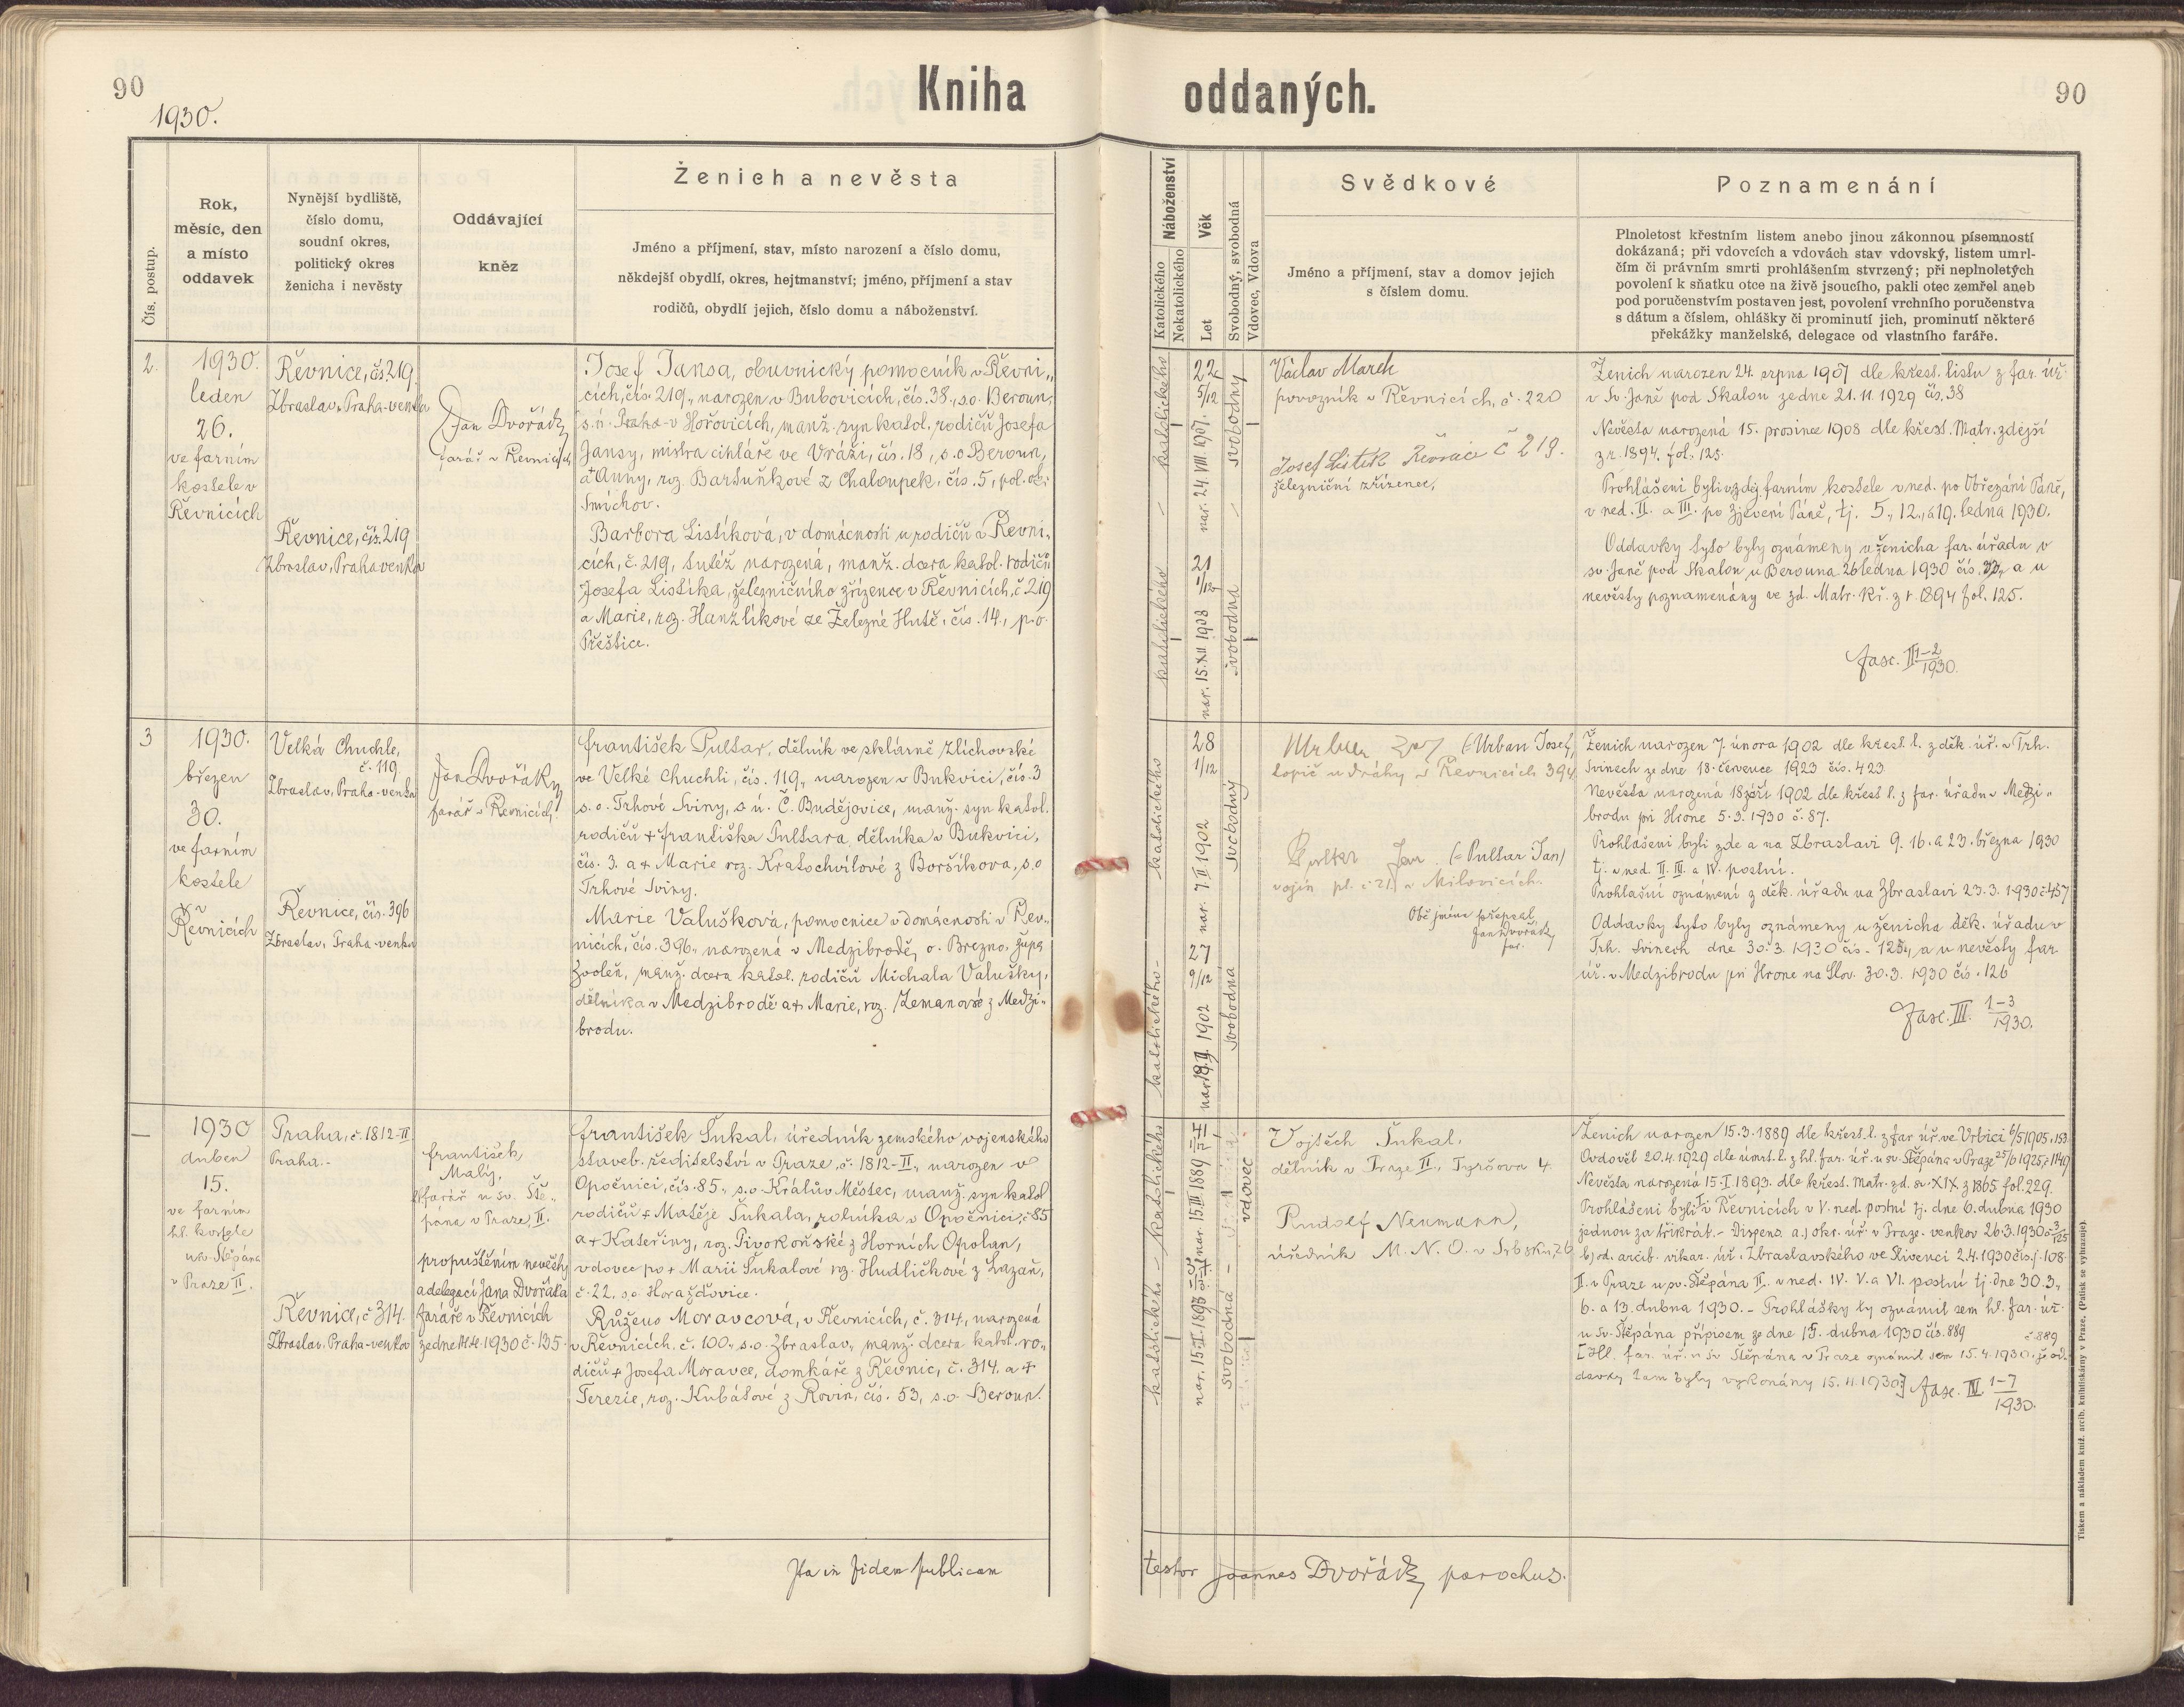 90
1930.
Kniha
oddaných.
90
Čís. postup.
Rok,
měsíc, den
a místo
oddavek
Nynější bydliště,
číslo domu,
soudní okres,
politický okres
ženicha i nevěsty
Oddávající
kněz
Ženich a nevěsta
Jméno a příjmení, stav, místo narození a číslo domu,
někdejší obydlí, okres, hejtmanství; jméno, příjmení a stav
rodičů, obydlí jejich, číslo domu a náboženství.
Náboženství
Katolického
Nekatolického
Věk
Let
Svobodný, svobodná
Vdovec, Vdova
Svědkové
Jméno a příjmení, stav a domov jejich
s číslem domu.
Poznamenání
Plnoletost křestním listem anebo jinou zákonnou písemností
dokázaná; při vdovcích a vdovách stav vdovský, listem umrl-
čím či právním smrti prohlášením stvrzený; při neplnoletých
povolení k sňatku otce na živě jsoucího, pakli otec zemřel aneb
pod poručenstvím postaven jest, povolení vrchního poručenstva
s dátum a číslem, ohlášky či prominutí jich, prominutí některé
překážky manželské, delegace od vlastního faráře.
2.
1930.
leden
26.
ve farním
kostele v
Řevnicích
Řevnice, čís. 219
Zbraslav, Praha-venkov
Řevnice, čís. 219
Zbraslav, Praha venkov
Jan Dvořák,
farář v Řevnicích
Josef Jansa, obuvnický pomocník v Řevni„
cích, čís. 219., narozen v Bubovicích, čís. 38., s.o. Beroun,
s.ú. Praha - v Hořovicích, manž. syn katol. rodičů Josefa
Jansy, mistra cihláře ve Vráži, čís. 18, s.o Beroun,
a Anny, roz. Bartuňkové z Chaloupek, čís. 5, pol. ok.
Smíchov.
Barbora Listíková, v domácnosti u rodičů v Řevni„
cích, č. 219, tutéž narozená, manž. dcera katol. rodičů
Josefa Listíka, železničního zřízence v Řevnicích, č. 219
a Marie, roz. Hanzlíkové ze Železné Hutě, čís. 14., p.o.
Přeštice.
katolického
katolického
22
5/12
nar. 24. VIII. 1907.
21
1/12
nar. 15. XII 1908
svobodný
svobodna
Václav March
povozník v Řevnicích, č. 220
Josef Listík Řevnice č 219.
železniční zřízenec,
Ženich narozen 24. srpna 1907 dle křest. listu z far. úř.
v Sv. Janě pod Skalou ze dne 21. 11. 1929 čís. 38
Nevěsta narozená 15. prosince 1908 dle křest. Matr. zdejší
z r. 1894. fol. 125.
Prohlášeni byli v zdej. farním kostele v ned. po Obřezání Páně,
v ned. II. a III. po Zjevení Páně, tj. 5., 12., a 19. ledna 1930.
Oddavky tyto byly oznámeny u ženicha far. úřadu v
sv. Janě pod Skalou u Berouna 26 ledna 1930 čís. a u
nevěsty poznamenány ve zd. Matr. kř. z r. 1894 fol. 125.
fasc. III 1-2
1930.
3
1930.
březen
30.
ve farním
kostele
v
Řevnicích
Velká Chuchle,
č. 119
Zbraslav, Praha-venkov
Řevnice, čís. 396
Zbraslav, Praha-venkov
Jan Dvořák,
farář v Řevnicích.
František Pultar, dělník ve sklárně zlíchovské
ve Velké Chuchli, čís. 119., narozen v Bukvici, čís. 3
s.o. Trhové Sviny, s.ú. Č. Budějovice, manž. syn katol.
rodičů + Františka Pultara, dělníka v Bukvici,
čís. 3. a + Marie roz. Kratochvílové z Boršíkova, s.o
Trhové Sviny.
Marie Valušková, pomocnice v domácnosti v Řev„
nicích, čís. 396., narozená v Medzibrodě, o. Brezno, župa
Zvoleň, manž. dcera katol. rodičů Michala Valušky,
dělníka v Medzibrodě a + Marie, roz. Zemanové z Medzi„
brodu.
katolického
katolického-
28
1/12
nar. 7. II. 1902
27
9/12
1902
svobodný
svobodna
(Urban Josef,
topič u dráhy v Řevnicích 394
Pultar Jan (Pultar Jan)
vojín pl. č. 21. v Milovicích.
Obě jména přepsal
Jan Dvořák,
far.
Ženich narozen 7. února 1902 dle křest. l. z děk. úř. v Trh.
Svinech ze dne 18. července 1923 čís. 423
Nevěsta narozená 18 září 1902 dle křest l. z far. úřadu v Medzi„
brodu při Hrone 5.3. 1930 č. 87.
Prohlášeni byli zde a na Zbraslavi 9. 16. a 23. března 1930
tj. v ned. II. III. a IV. postní.
Prohlašní oznámení z děk. úřadu na Zbraslavi 23. 3. 1930 č. 457
Oddavky tyto byly oznámeny u ženicha děk. úřadu v
Trh. Svinech dne 30. 3. 1930 čís. 125, a u nevěsty far.
úř. v Medzibrodu při Hrone na Slov. 30. 3. 1930 čís. 126
Fasc. III. 1-3
1930.
—
1930
duben
15.
ve farním
hl. kostele
u sv. Štěpána
v Praze II.
Praha, č. 1812-II
Praha.-
Řevnice, č 314.
Zbraslav, Praha-venkov
František
Malý,
farář u sv. Ště„
pána v Praze, II.
propuštěním nevěsty
a delegací Jana Dvořáka
faráře v Řevnicích
ze dne 14.4. 1930 č. 135.
František Šukal, úředník zemského vojenského
staveb. ředitelství v Praze, č. 1812-II., narozen v
Opočnici, čís. 85., s.o. Králův Městec, manž. syn katol
rodičů + Matěje Šukala, rolníka v Opočnici, č 85
a + Kateřiny, roz. Pivokonské z Horních Opolan,
vdovec po + Marii Šukalové roz. Hudličkové z Lazan,
č. 22, s.o. Horažďovice.
Růžena Moravcová, v Řevnicích, č. 314., narozená
v Řevnicích, č. 100., s.o. Zbraslav, manž. dcera katol. ro„
dičů + Josefa Moravce, domkáře z Řevnic, č. 314. a +
Terezie, roz. Kubátové z Rovin, čís. 53, s.o. Beroun.
katolického - katolického
nar. 15. I. 1893
nar. 15 III 1889
svobodná -
vdovec
Vojtěch Šukal,
dělník v Praze II., Tyršova 4.
Rudolf Neumann,
úředník M. N. O. v Srbsku, 26
Ženich narozen 15. 3. 1889 dle křest. l. z far. úř. ve Vrbici 6/5 1905 č. 153
Ovdověl 20. 4. 1929 dle úmrt. l. z hl. far. úř. u sv. Štěpána v Praze 25/6 1925 č. 1149
Nevěsta narozená 15. I. 1893. dle křest. matr. zd. sv. XIX z 1865 fol. 229.
Prohlášeni byli I. v Řevnicích v V. ned. postní tj. dne 6. dubna 1930
jednou za třikrát. - Dispens. a.) okr. úř. v Praze - venkov 26. 3. 1930
b) od arcib. vikar. úř. Zbraslavského ve Slivenci 2. 4. 1930 čís. j. 108.
II. v Praze u sv. Štěpána II. v ned. IV. V. a VI. postní tj. dne 30. 3.,
6. a 13. dubna 1930. - Prohlášky ty oznámil sem hl. far. úř.
u sv. Štěpána přípisem ze dne 15. dubna 1930 čís. 889
č. 889
[Hl. far. úř. u sv Štěpána v Praze oznámil sem 15. 4. 1930, že od-
davky tam byly vykonány 15. 4. 1930.] fasc. IV 1-7
1930.
Ita in fidem publicam
testor Joannes Dvořák, parochus.
Tiskem a nákladem kníž. arcib. knihtiskárny v Praze. (Patisk se vyhrazuje).